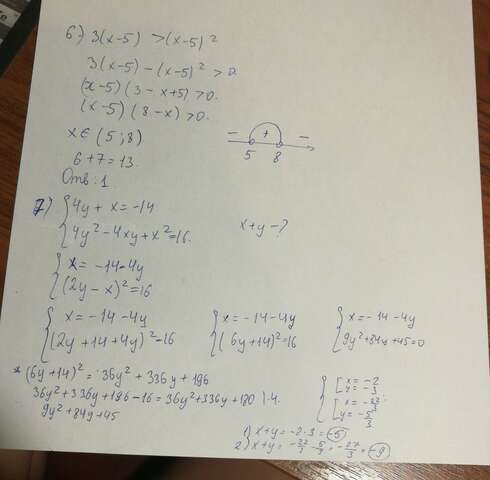 6) 3(x-5) > (x-5)²
3(x-5) - (x-5)² > 0.
(x-5)(3-x+5) > 0.
(x-5)(8-x) > 0.
x ∈ (5; 8)
- + -
5 8
6+7=13.
Отв: 1
7) { 4y + x = -14
{ 4y² - 4xy + x² = 16.
x+y - ?
{ x = -14-4y
{ (2y - x)² = 16
{ x = -14-4y
{ (2y+14+4y)² = 16
{ x = -14-4y
{ (6y+14)² = 16
{ x = -14-4y
{ 9y² + 84y + 45 = 0
* (6y+14)² = 36y² + 336y + 196
36y² + 336y + 196 - 16 = 36y² + 336y + 180 |:4.
9y² + 84y + 45
{ [ x = -2
y = -3
[ x = -22/3
y = -5/3
1) x+y = -2-3 = -5
2) x+y = -22/3 - 5/3 = -27/3 = -9